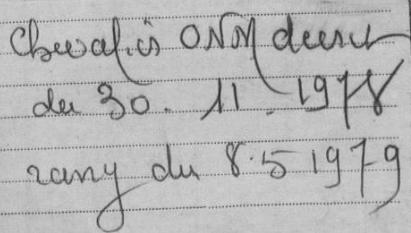 Chevalier ONM décret
du 30. 11. 1978
rang du 8.5 1979